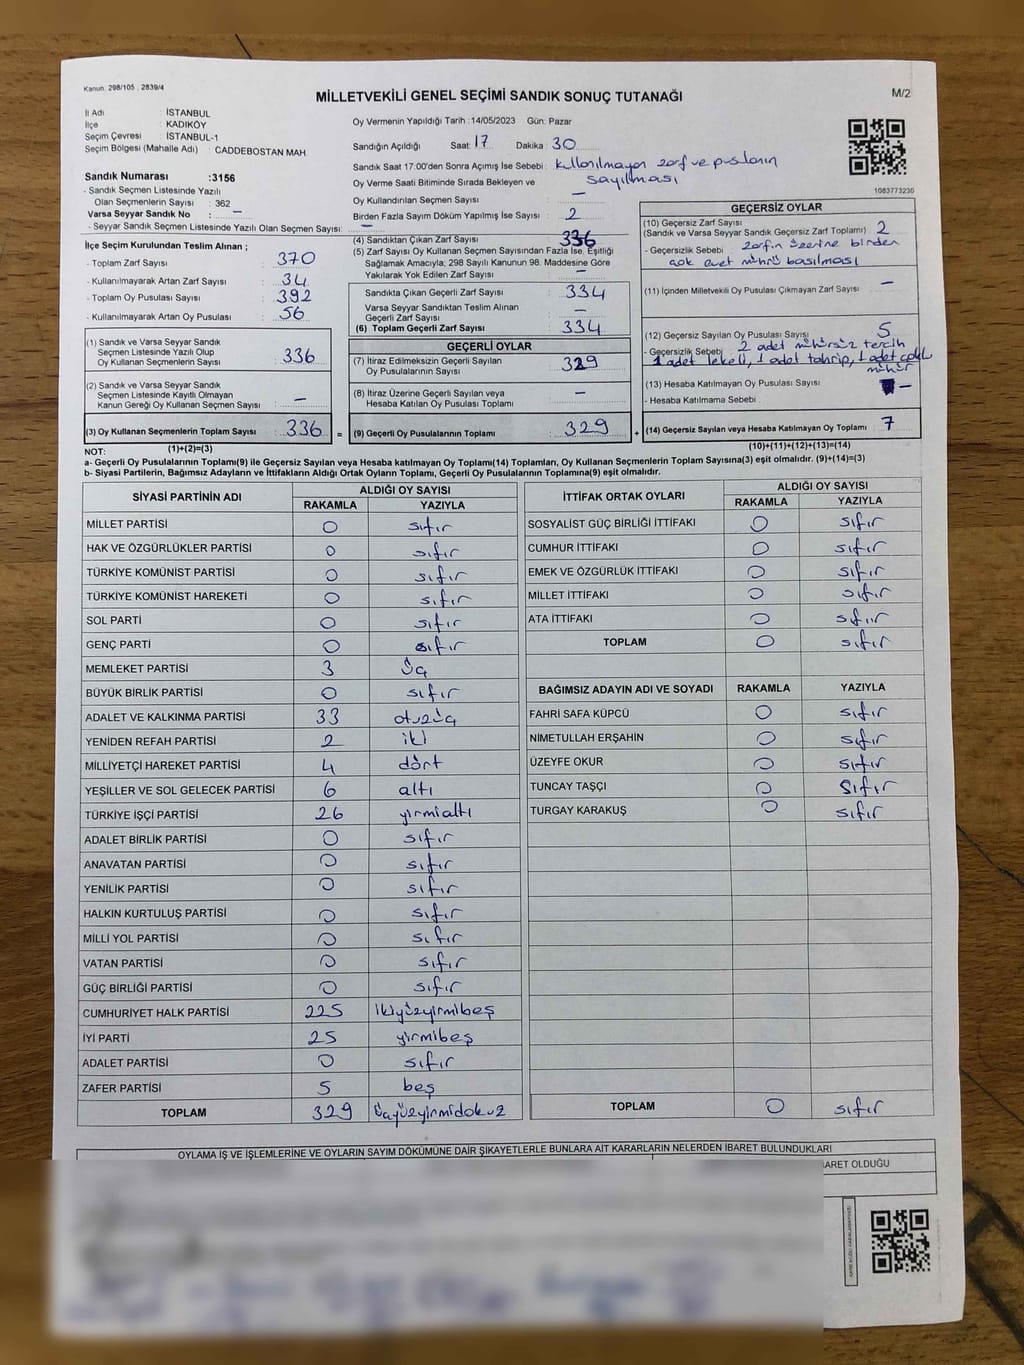 Kanun. 298/105 , 2839/4
MİLLETVEKİLİ GENEL SEÇİMİ SANDIK SONUÇ TUTANAĞI
M/2
İl Adı : İSTANBUL
İlçe : KADIKÖY
Seçim Çevresi : İSTANBUL-1
Seçim Bölgesi (Mahalle Adı) : CADDEBOSTAN MAH
Sandık Numarası :3156
- Sandık Seçmen Listesinde Yazılı
Olan Seçmenlerin Sayısı : 362
Varsa Seyyar Sandık No : –
- Seyyar Sandık Seçmen Listesinde Yazılı Olan Seçmen Sayısı: –
Oy Vermenin Yapıldığı Tarih :14/05/2023 Gün: Pazar
Sandığın Açıldığı Saat: 17 Dakika : 30
Sandık Saat 17:00'den Sonra Açımış İse Sebebi : kullanılmayan zarf ve pusulanın
sayılması
Oy Verme Saati Bitiminde Sırada Bekleyen ve
Oy Kullandırılan Seçmen Sayısı : –
Birden Fazla Sayım Döküm Yapılmış İse Sayısı : 2
1083773230
İlçe Seçim Kurulundan Teslim Alınan ;
- Toplam Zarf Sayısı : 370
- Kullanılmayarak Artan Zarf Sayısı : 34
- Toplam Oy Pusulası Sayısı : 392
- Kullanılmayarak Artan Oy Pusulası : 56
(1) Sandık ve Varsa Seyyar Sandık
Seçmen Listesinde Yazılı Olup
Oy Kullanan Seçmenlerin Sayısı : 336
(2) Sandık ve Varsa Seyyar Sandık
Seçmen Listesinde Kayıtlı Olmayan
Kanun Gereği Oy Kullanan Seçmen Sayısı : –
(3) Oy Kullanan Seçmenlerin Toplam Sayısı : 336
(1)+(2)=(3)
(4) Sandıktan Çıkan Zarf Sayısı : 336
(5) Zarf Sayısı Oy Kullanan Seçmen Sayısından Fazla İse, Eşitliği
Sağlamak Amacıyla; 298 Sayılı Kanunun 98. Maddesine Göre
Yakılarak Yok Edilen Zarf Sayısı : –
Sandıkta Çıkan Geçerli Zarf Sayısı : 334
Varsa Seyyar Sandıktan Teslim Alınan
Geçerli Zarf Sayısı : –
(6) Toplam Geçerli Zarf Sayısı : 334
GEÇERLİ OYLAR
(7) İtiraz Edilmeksizin Geçerli Sayılan
Oy Pusulalarının Sayısı : 329
(8) İtiraz Üzerine Geçerli Sayılan veya
Hesaba Katılan Oy Pusulası Toplamı : –
= (9) Geçerli Oy Pusulalarının Toplamı : 329
GEÇERSİZ OYLAR
(10) Geçersiz Zarf Sayısı
(Sandık ve Varsa Seyyar Sandık Geçersiz Zarf Toplamı) : 2
- Geçersizlik Sebebi : zarfın üzerine birden
çok evet mührü basılması
(11) İçinden Milletvekili Oy Pusulası Çıkmayan Zarf Sayısı : –
(12) Geçersiz Sayılan Oy Pusulası Sayısı : 5
- Geçersizlik Sebebi : 2 adet mühürsüz tercih
1 adet lekeli, 1 adet tahrip, 1 adet çoklu
mühür
(13) Hesaba Katılmayan Oy Pusulası Sayısı : –
- Hesaba Katılmama Sebebi :
+ (14) Geçersiz Sayılan veya Hesaba Katılmayan Oy Toplamı : 7
(10)+(11)+(12)+(13)=(14)
NOT:
a- Geçerli Oy Pusulalarının Toplamı(9) ile Geçersiz Sayılan veya Hesaba katılmayan Oy Toplamı(14) Toplamları, Oy Kullanan Seçmenlerin Toplam Sayısına(3) eşit olmalıdır. (9)+(14)=(3)
b- Siyasi Partilerin, Bağımsız Adayların ve İttifakların Aldığı Ortak Oyların Toplamı, Geçerli Oy Pusulalarının Toplamına(9) eşit olmalıdır.
SİYASİ PARTİNİN ADI ALDIĞI OY SAYISI
RAKAMLA YAZIYLA
MİLLET PARTİSİ 0 sıfır
HAK VE ÖZGÜRLÜKLER PARTİSİ 0 sıfır
TÜRKİYE KOMÜNİST PARTİSİ 0 sıfır
TÜRKİYE KOMÜNİST HAREKETİ 0 sıfır
SOL PARTİ 0 sıfır
GENÇ PARTİ 0 sıfır
MEMLEKET PARTİSİ 3 üç
BÜYÜK BİRLİK PARTİSİ 0 sıfır
ADALET VE KALKINMA PARTİSİ 33 otuzüç
YENİDEN REFAH PARTİSİ 2 iki
MİLLİYETÇİ HAREKET PARTİSİ 4 dört
YEŞİLLER VE SOL GELECEK PARTİSİ 6 altı
TÜRKİYE İŞÇİ PARTİSİ 26 yirmialtı
ADALET BİRLİK PARTİSİ 0 sıfır
ANAVATAN PARTİSİ 0 sıfır
YENİLİK PARTİSİ 0 sıfır
HALKIN KURTULUŞ PARTİSİ 0 sıfır
MİLLİ YOL PARTİSİ 0 sıfır
VATAN PARTİSİ 0 sıfır
GÜÇ BİRLİĞİ PARTİSİ 0 sıfır
CUMHURİYET HALK PARTİSİ 225 ikiyüzyirmibeş
İYİ PARTİ 25 yirmibeş
ADALET PARTİSİ 0 sıfır
ZAFER PARTİSİ 5 beş
TOPLAM 329 üçyüzyirmidokuz
İTTİFAK ORTAK OYLARI ALDIĞI OY SAYISI
RAKAMLA YAZIYLA
SOSYALİST GÜÇ BİRLİĞİ İTTİFAKI 0 sıfır
CUMHUR İTTİFAKI 0 sıfır
EMEK VE ÖZGÜRLÜK İTTİFAKI 0 sıfır
MİLLET İTTİFAKI 0 sıfır
ATA İTTİFAKI 0 sıfır
TOPLAM 0 sıfır
BAĞIMSIZ ADAYIN ADI VE SOYADI RAKAMLA YAZIYLA
FAHRİ SAFA KÜPCÜ 0 sıfır
NİMETULLAH ERŞAHİN 0 sıfır
ÜZEYFE OKUR 0 sıfır
TUNCAY TAŞÇI 0 sıfır
TURGAY KARAKUŞ 0 sıfır
TOPLAM 0 sıfır
OYLAMA İŞ VE İŞLEMLERİNE VE OYLARIN SAYIM DÖKÜMÜNE DAİR ŞİKAYETLERLE BUNLARA AİT KARARLARIN NELERDEN İBARET BULUNDUKLARI
OLDUĞU